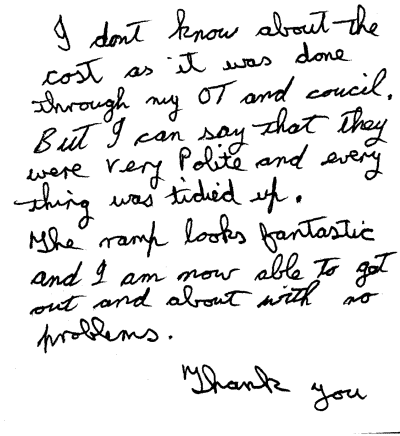 I dont know about the
cost as it was done
through my OT and coucil.
But I can say that they
were very Polite and every
thing was tidied up.
The ramp looks fantastic
and I am now able to get
out and about with no
problems.
Thank you